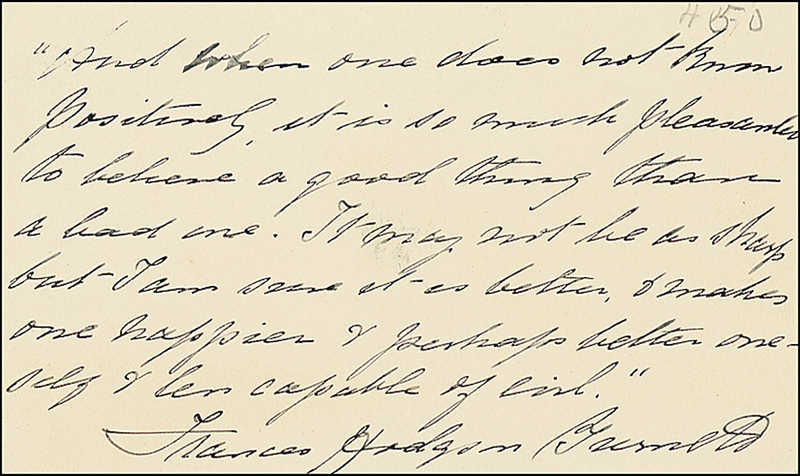 450
"And when one does not know
positively, it is so much pleasanter
to believe a good thing than
a bad one. It may not be as sharp
but I am sure it is better, & makes
one happier & perhaps better one-
self & less capable of evil."
Frances Hodgson Burnett